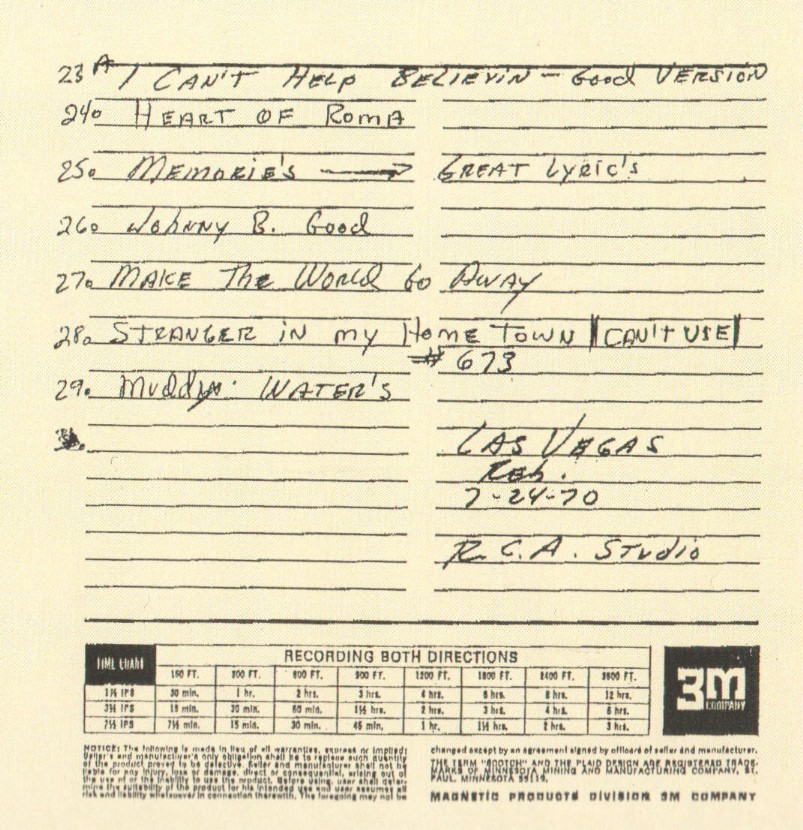 23A I CAN'T HELP BELIEVIN - Good VERSION
24. HEART OF Roma
25. MEMORIE'S → GREAT Lyric's
26. Johnny B. Good
27. MAKE The World Go AWAY
28. STRANGER in my HomE TOWN CAN'T USE
# 673
29. Muddy WATER'S
LAS VEGAS
Reh.
7-24-70
R.C.A. STudio
RECORDING BOTH DIRECTIONS
TIME CHART 150 FT. 300 FT. 600 FT. 900 FT. 1200 FT. 1800 FT. 2400 FT. 3600 FT.
1⅞ IPS 30 min. 1 hr. 2 hrs. 3 hrs. 4 hrs. 6 hrs. 8 hrs. 12 hrs.
3¾ IPS 15 min. 30 min. 60 min. 1½ hrs. 2 hrs. 3 hrs. 4 hrs. 6 hrs.
7½ IPS 7½ min. 15 min. 30 min. 45 min. 1 hr. 1½ hrs. 2 hrs. 3 hrs.
3M
COMPANY
NOTICE: The following is made in lieu of all warranties, express or implied:
Seller's and manufacturer's only obligation shall be to replace such quantity
of the product proved to be defective. Seller and manufacturer shall not be
liable for any injury, loss or damage, direct or consequential, arising out of
the use of or the inability to use the product. Before using, user shall deter-
mine the suitability of the product for his intended use and user assumes all
risk and liability whatsoever in connection therewith. The foregoing may not be
changed except by an agreement signed by officers of seller and manufacturer.
THE TERM "SCOTCH" AND THE PLAID DESIGN ARE REGISTERED TRADE-
MARKS OF MINNESOTA MINING AND MANUFACTURING COMPANY, ST.
PAUL, MINNESOTA 55119.
MAGNETIC PRODUCTS DIVISION 3M COMPANY